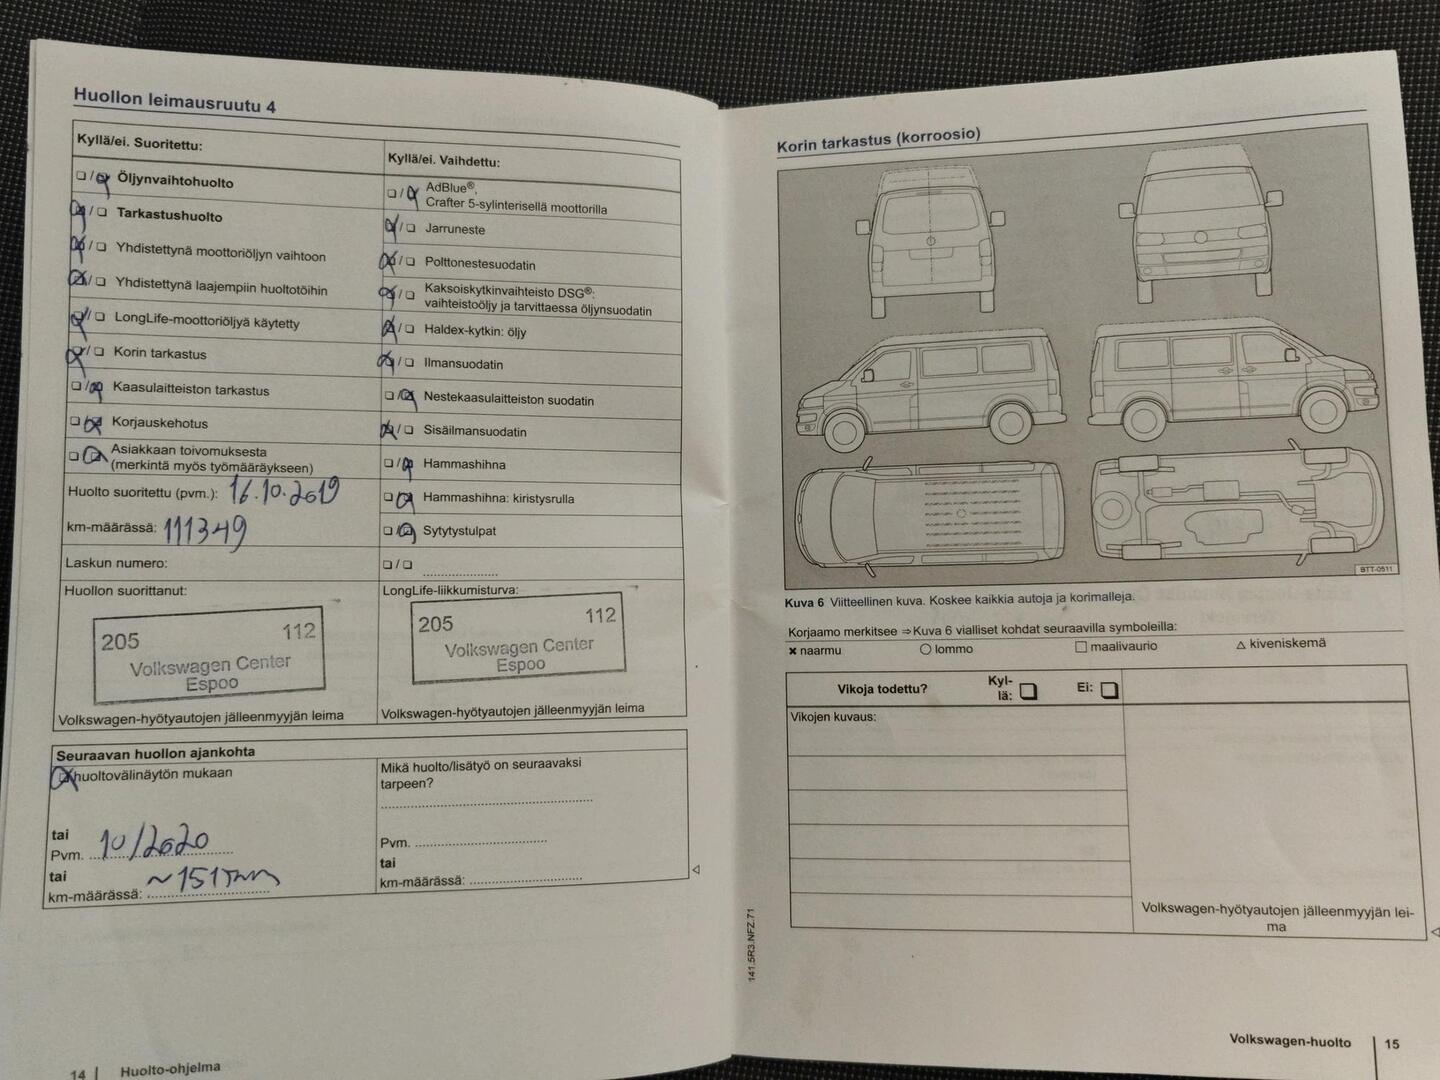 Huollon leimausruutu 4
Kyllä/ei. Suoritettu:
❏ / ❏ Öljynvaihtohuolto
❏ / ❏ Tarkastushuolto
❏ / ❏ Yhdistettynä moottoriöljyn vaihtoon
❏ / ❏ Yhdistettynä laajempiin huoltotöihin
❏ / ❏ LongLife-moottoriöljyä käytetty
❏ / ❏ Korin tarkastus
❏ / ❏ Kaasulaitteiston tarkastus
❏ / ❏ Korjauskehotus
❏ / ❏ Asiakkaan toivomuksesta
(merkintä myös työmääräykseen)
Huolto suoritettu (pvm.): 16.10.2019
km-määrässä: 111349
Laskun numero:
Huollon suorittanut:
205 112
Volkswagen Center
Espoo
Volkswagen-hyötyautojen jälleenmyyjän leima
Kyllä/ei. Vaihdettu:
❏ / ❏ AdBlue®,
Crafter 5-sylinterisellä moottorilla
❏ / ❏ Jarruneste
❏ / ❏ Polttonestesuodatin
❏ / ❏ Kaksoiskytkinvaihteisto DSG®:
vaihteistoöljy ja tarvittaessa öljynsuodatin
❏ / ❏ Haldex-kytkin: öljy
❏ / ❏ Ilmansuodatin
❏ / ❏ Nestekaasulaitteiston suodatin
❏ / ❏ Sisäilmansuodatin
❏ / ❏ Hammashihna
❏ / ❏ Hammashihna: kiristysrulla
❏ / ❏ Sytytystulpat
❏ / ❏ ....................
LongLife-liikkumisturva:
205 112
Volkswagen Center
Espoo
Volkswagen-hyötyautojen jälleenmyyjän leima
Seuraavan huollon ajankohta
❏ huoltovälinäytön mukaan
tai
Pvm. 10/2020
tai
km-määrässä: ~151
Mikä huolto/lisätyö on seuraavaksi
tarpeen?
Pvm. ....................
tai
km-määrässä: ....................
14 | Huolto-ohjelma
Korin tarkastus (korroosio)
BTT-0511
Kuva 6 Viitteellinen kuva. Koskee kaikkia autoja ja korimalleja.
Korjaamo merkitsee ⇒ Kuva 6 vialliset kohdat seuraavilla symboleilla:
✖ naarmu ○ lommo □ maalivaurio △ kiveniskemä
Vikoja todettu? Kyl-
lä: ❏ Ei: ❏
Vikojen kuvaus:
Volkswagen-hyötyautojen jälleenmyyjän lei-
ma
141.5R3.NFZ.71
Volkswagen-huolto | 15